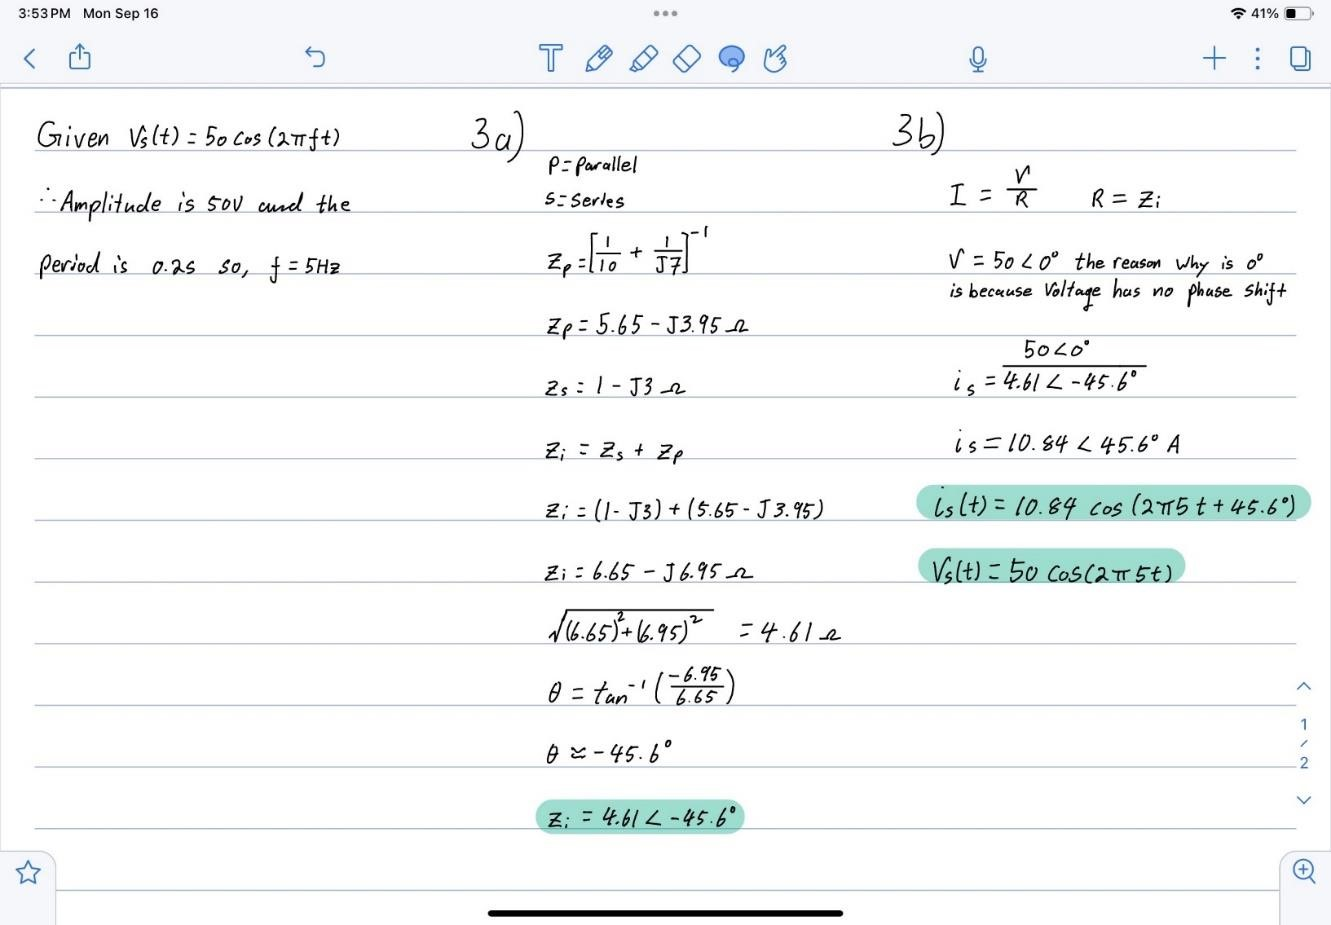 3:53 PM Mon Sep 16
41%
Given Vs(t) = 50 cos (2πft)
∴ Amplitude is 50V and the
period is 0.2s so, f = 5Hz
3a)
P = Parallel
S = Series
Zp = [1/10 + 1/J7]^-1
Zp = 5.65 - J3.95 Ω
Zs = 1 - J3 Ω
Zi = Zs + Zp
Zi = (1 - J3) + (5.65 - J3.95)
Zi = 6.65 - J6.95 Ω
√(6.65)²+(6.95)² = 4.61 Ω
θ = tan^-1 (-6.95/6.65)
θ ≈ -45.6°
Zi = 4.61 ∠ -45.6°
3b)
I = V/R R = Zi
V = 50 ∠0° the reason why is 0°
is because Voltage has no phase shift
is = 50∠0° / 4.61 ∠ -45.6°
is = 10.84 ∠ 45.6° A
is(t) = 10.84 cos (2π5t + 45.6°)
Vs(t) = 50 cos(2π5t)
1
/
2